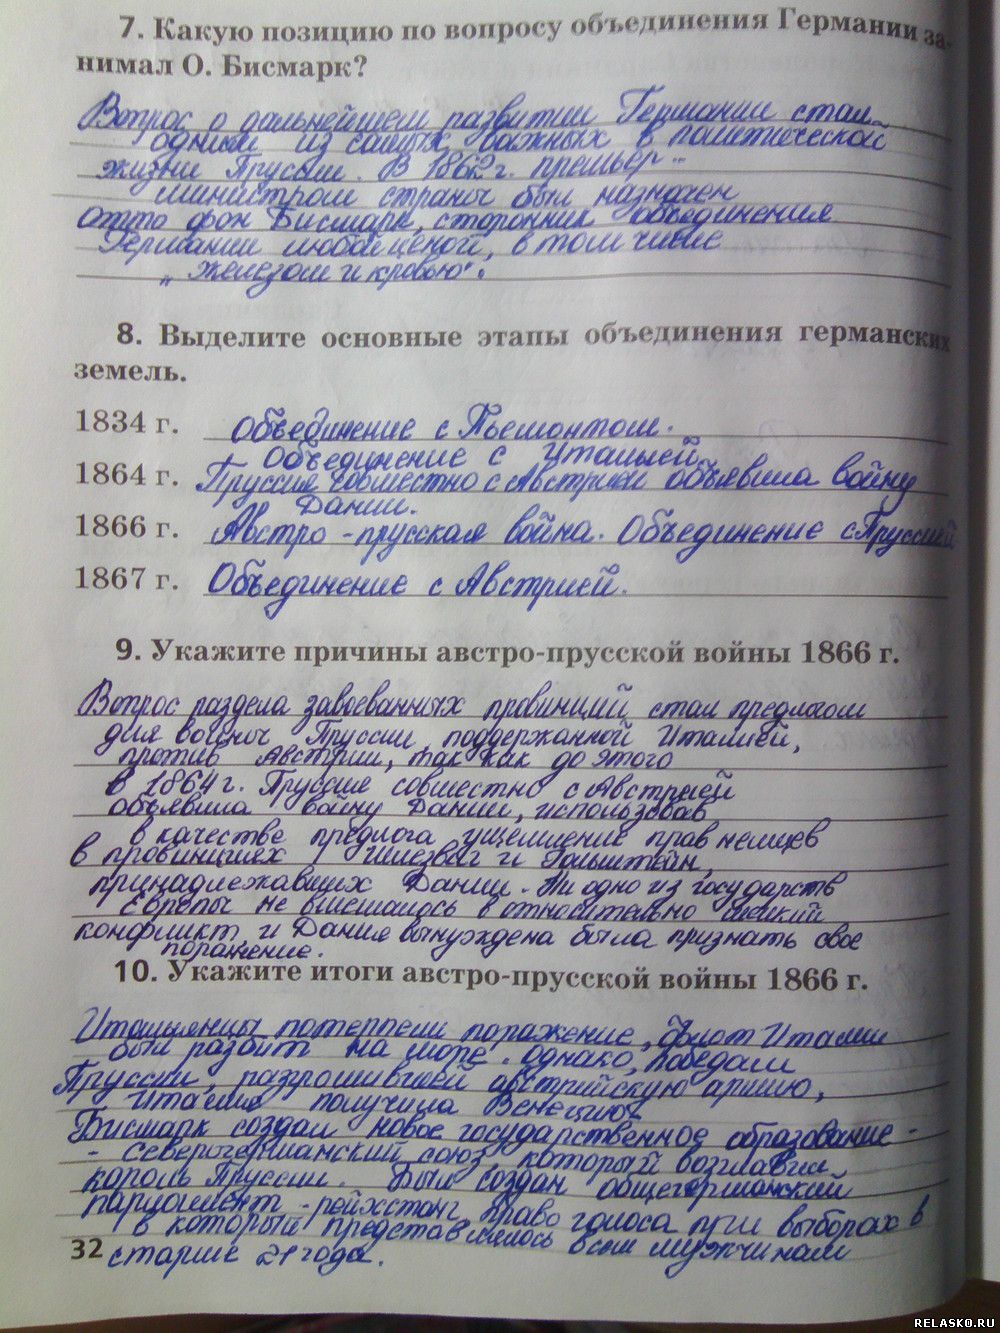 7. Какую позицию по вопросу объединения Германии за-
нимал О. Бисмарк?
Вопрос о дальнейшем развитии Германии стал
одним из самых важных в политической
жизни Пруссии. В 1862 г. премьер-
министром страны был назначен
Отто фон Бисмарк, сторонник объединения
Германии любой ценой, в том числе
„железом и кровью".
8. Выделите основные этапы объединения германских
земель.
1834 г. Объединение с Пьемонтом.
Объединение с Италией.
1864 г. Пруссия совместно с Австрией объявила войну
Дании.
1866 г. Австро-прусская война. Объединение с Пруссией
1867 г. Объединение с Австрией.
9. Укажите причины австро-прусской войны 1866 г.
Вопрос раздела завоеванных провинций стал предлогом
для войны Пруссии, поддержанной Италией,
против Австрии, так как до этого
в 1864 г. Пруссия совместно с Австрией
объявила войну Дании, использовав
в качестве предлога ущемление прав немцев
в провинциях Шлезвиг и Гольштейн,
принадлежавших Дании. Ни одно из государств
Европы не вмешалось в относительно
конфликт и Дания вынуждена была признать свое
поражение.
10. Укажите итоги австро-прусской войны 1866 г.
Итальянцы потерпели поражение, флот Италии
был разбит на море. однако, победам
Пруссии, разгромившей австрийскую армию,
Италия получила Венецию.
Бисмарк создал новое государственное образование -
- северогерманский союз, который возглавил
король Пруссии. Был создан общегерманский
парламент - рейхстаг, право голоса при выборах в
в который представлялось всем мужчинам
32 старше 21 года.
RELASKO.RU